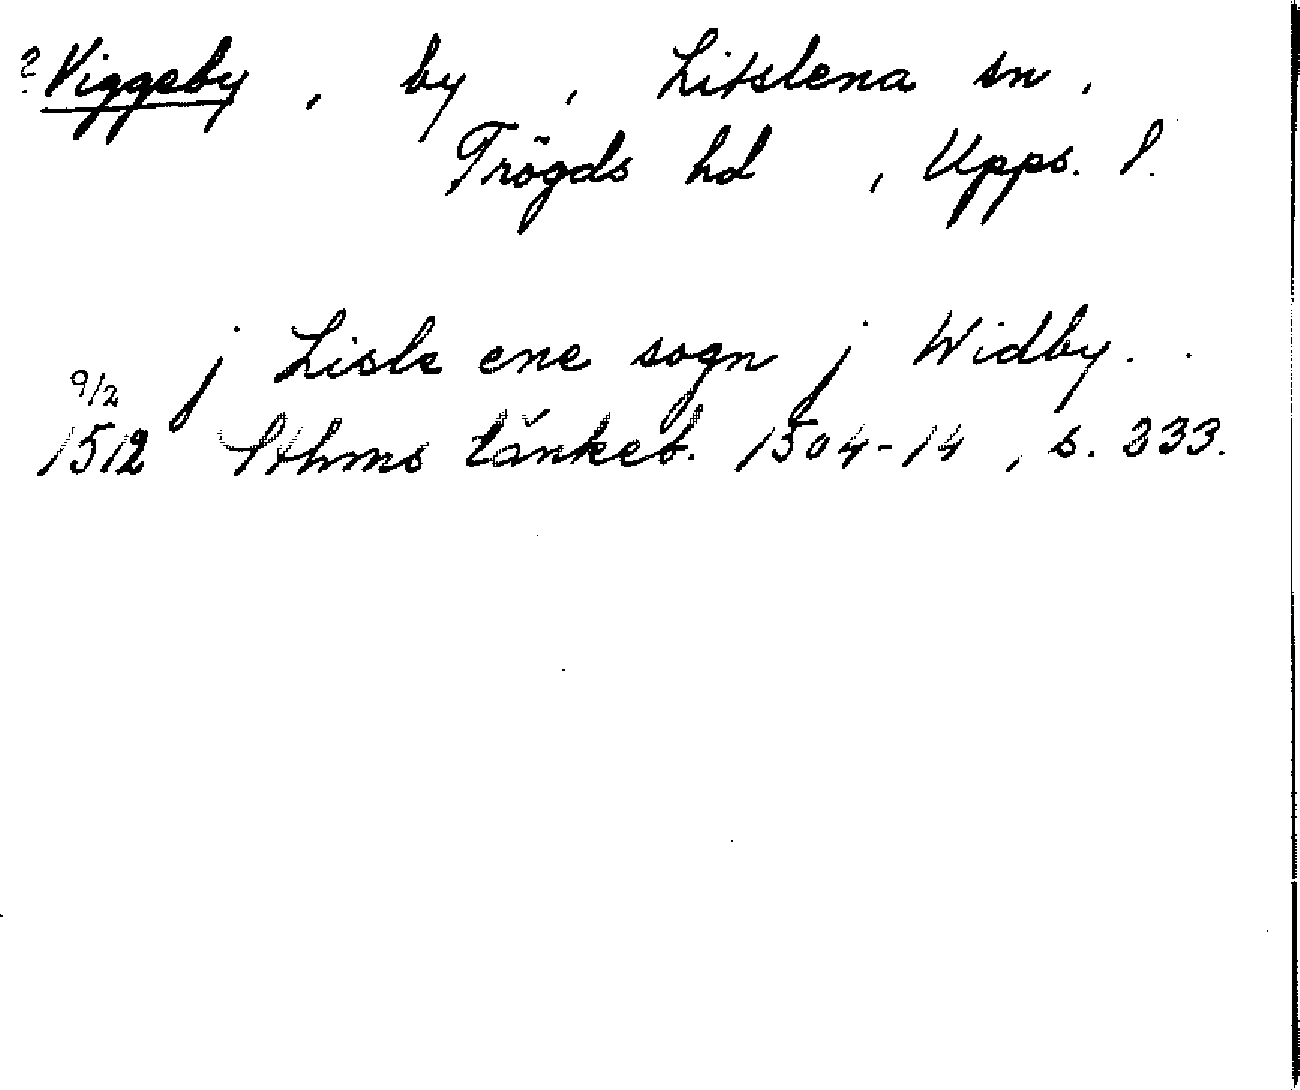 ? Viggeby, by, Litslena sn,
Trögds hd, Upps. l.
j Lisle ene sogn j Widby. .
9/2
1512 Sthms tänkeb. 1504-14, s. 333.